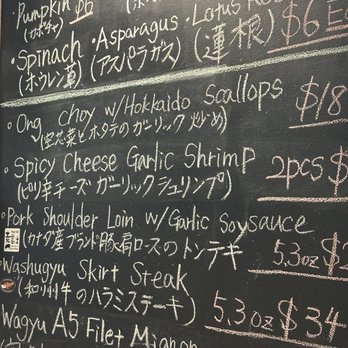 Pumpkin $6
(カボチャ)
・Spinach ・Asparagus ・Lotus $6
(ホウレン草) (アスパラガス) (蓮根)
・Ong choy w/Hokkaido Scallops $18
(空芯菜とホタテのガーリック炒め)
・Spicy Cheese Garlic Shrimp 2pcs $
(ピリ辛チーズガーリックシュリンプ)
・Pork Shoulder Loin w/Garlic Soysauce
(カナダ産ブランド豚肩ロースのトンテキ) 5.3oz $2
・Washugyu Skirt Steak
(和州牛のハラミステーキ) 5.3oz $34
Wagyu A5 Filet Mignon